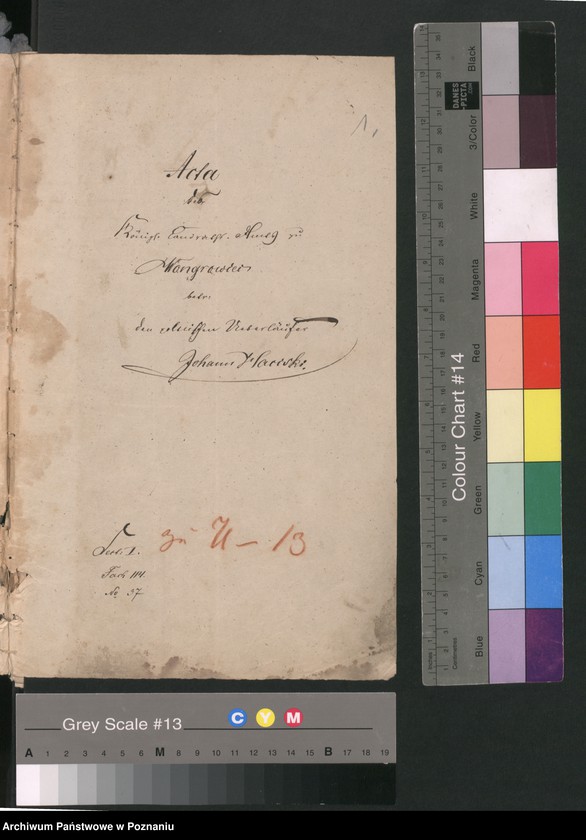 1.
Acta
des
Königl. Landraths-Amts zu
Wongrowiec
betr.
den polnischen Ueberläufer
Johann
Sect. I.
Fach 114.
No. 37
zu U - 13
Colour Chart #14
Black
3/Color
White
Magenta
Red
Yellow
Green
Cyan
Blue
DANES
-PICTA
.COM
Inches
Centimetres
Grey Scale #13
C Y M
A 1 2 3 4 5 6 M 8 9 10 11 12 13 14 15 B 17 18 19
Archiwum Państwowe w Poznaniu